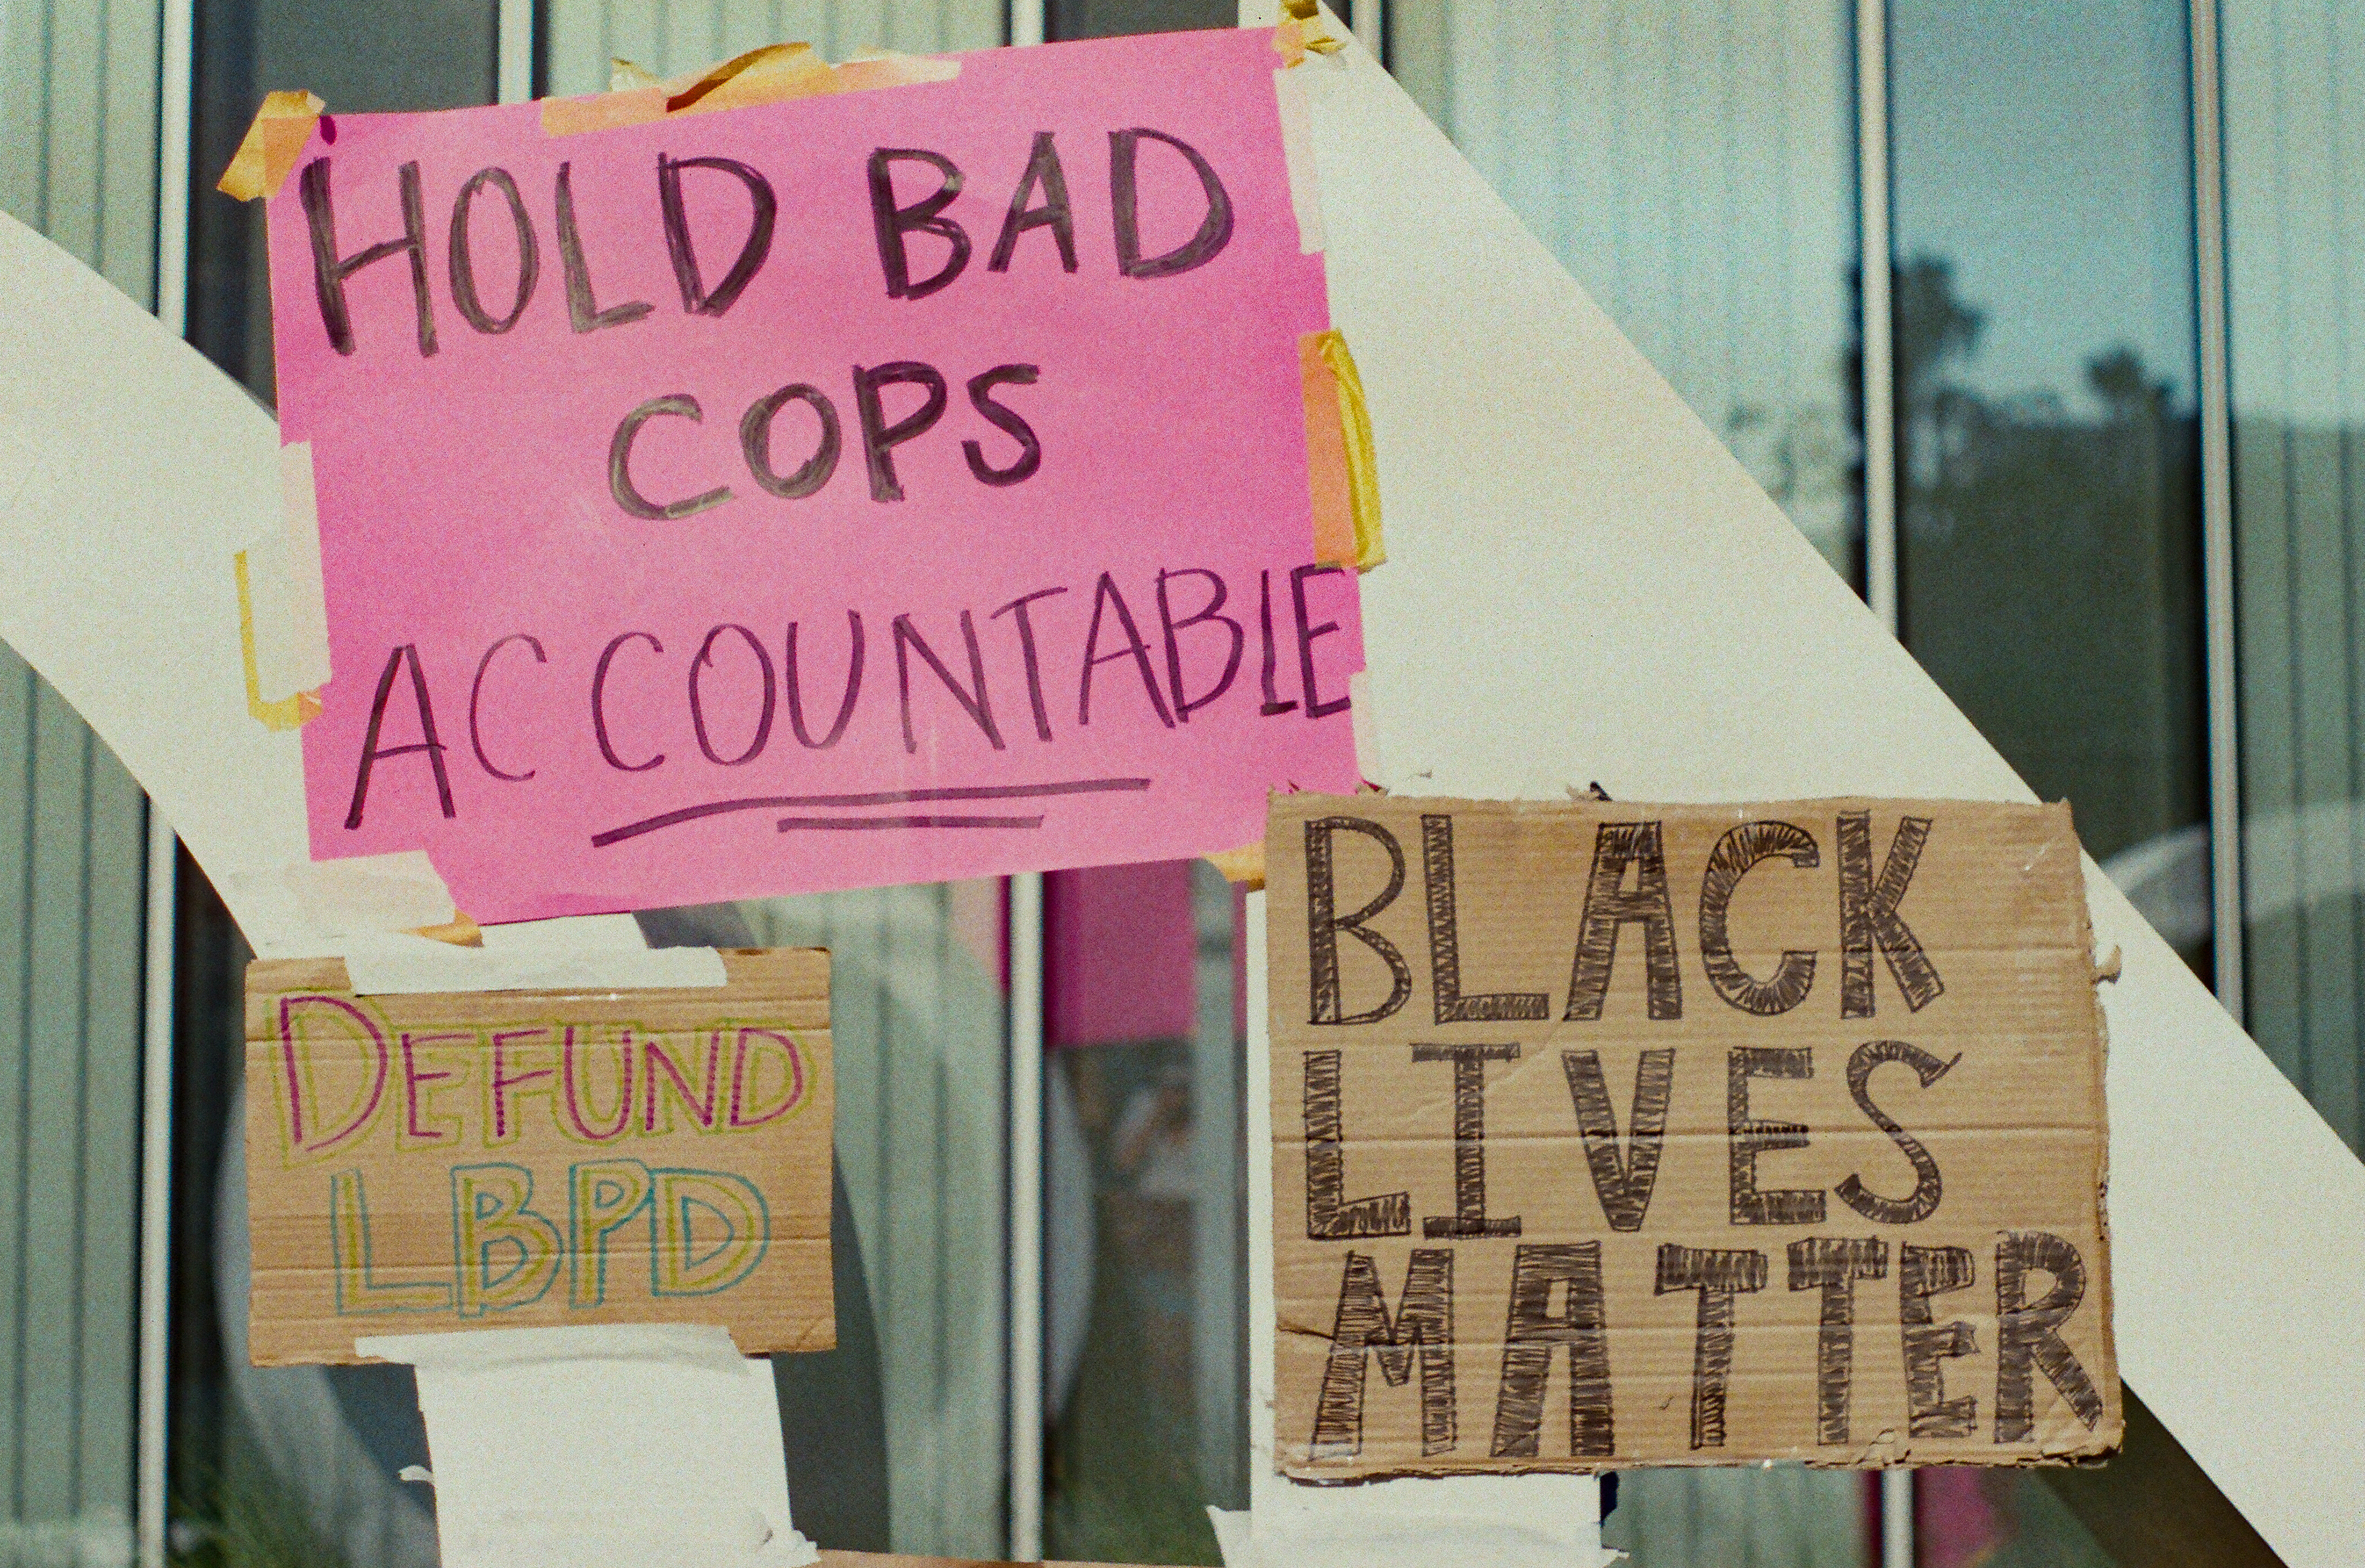 HOLD BAD
COPS
ACCOUNTABLE
DEFUND
LBPD
BLACK
LIVES
MATTER